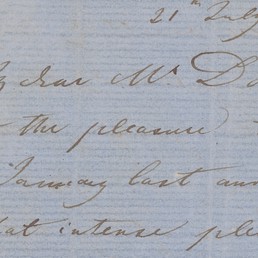 21st July
dear Mr Da
the pleasure
January last ann
at intense ple